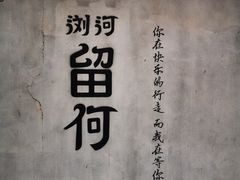 浏河
留何
你在快乐的行走 而我在等你